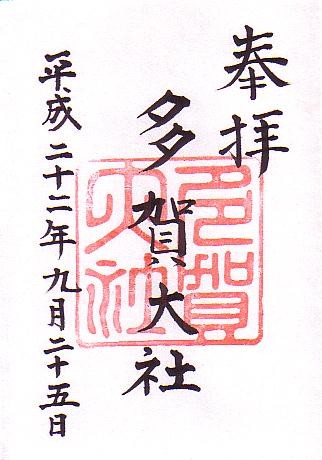 奉拝
多賀大社
平成二十二年九月二十五日
多賀
大社